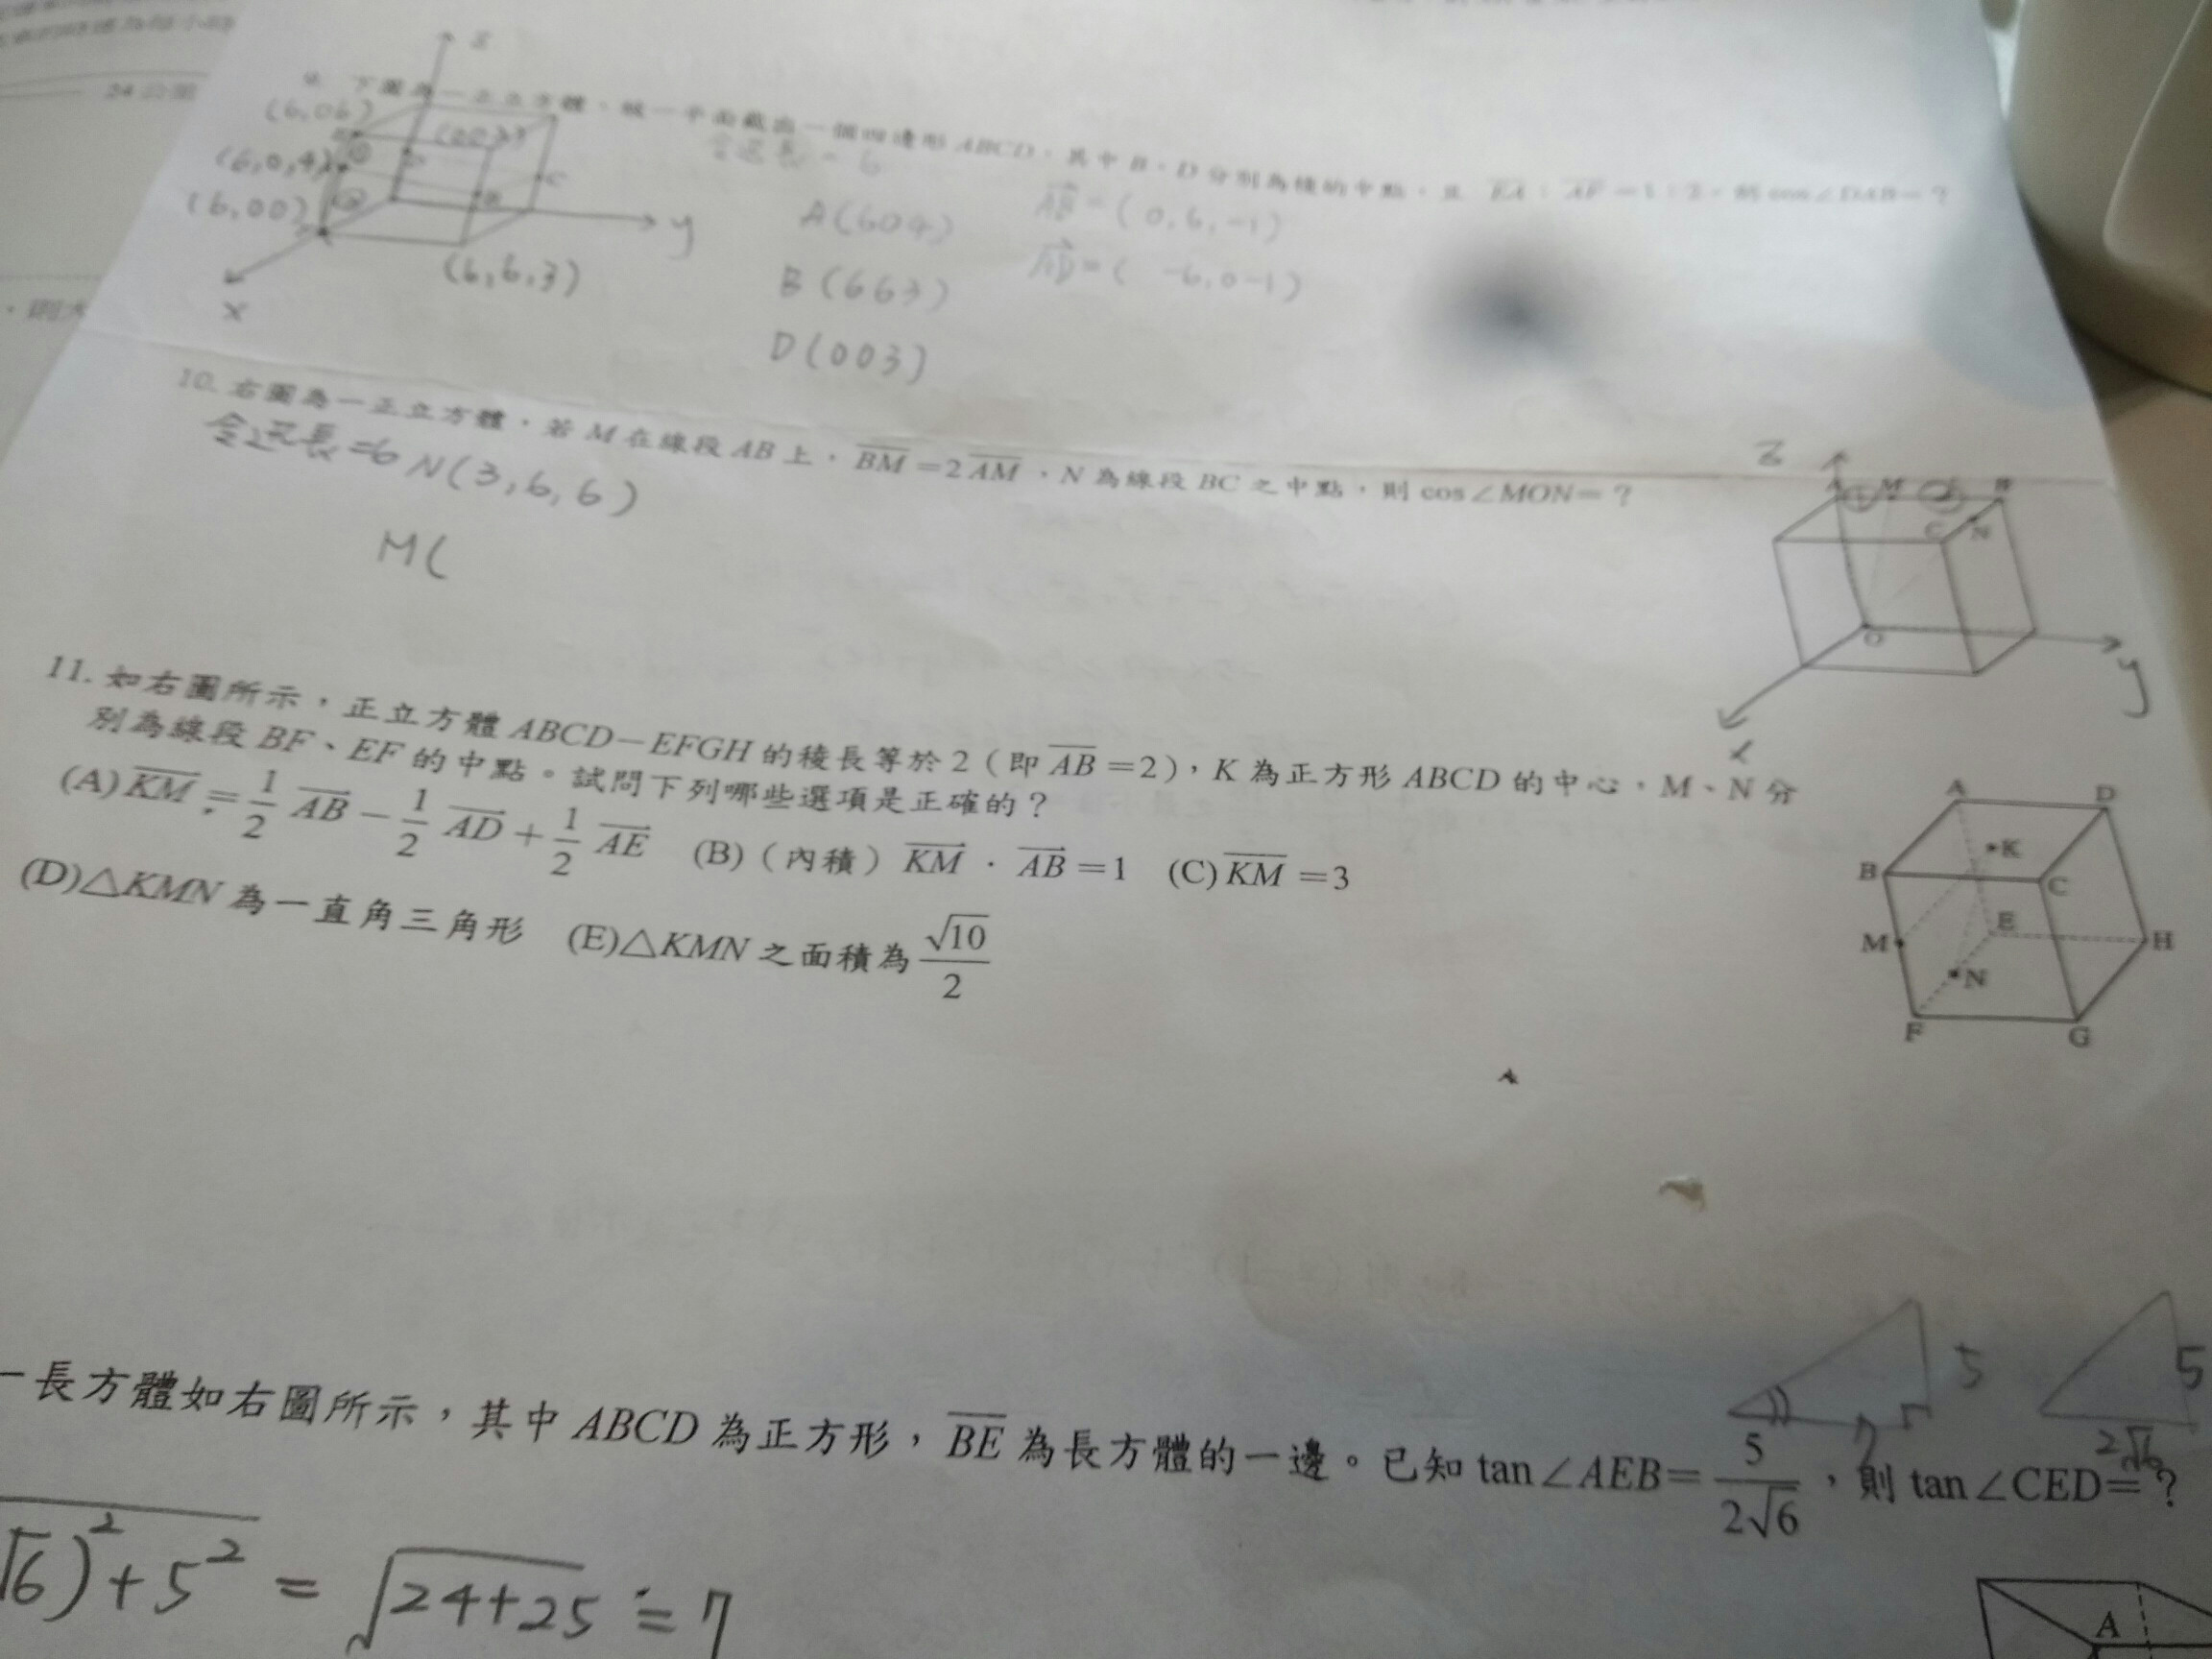 z
9. 下圖為一正立方體,被一平面截出一個四邊形ABCD,其中B、D分別為稜的中點,且 EA:AF=1:2,則cos∠DAB=?
(6,0,6)
(003)
令邊長=6
(6,0,4)
(6,00)
y
(6,6,3)
x
A(604)
AB=(0,6,-1)
B(663)
AD=(-6,0-1)
D(003)
10. 右圖為一正立方體,若 M 在線段 AB 上,BM=2AM,N 為線段 BC 之中點,則 cos∠MON=?
令邊長=6 N(3,6,6)
M(
z
A 1 M 2 B
C N
O
y
x
11. 如右圖所示,正立方體 ABCD-EFGH 的稜長等於 2(即 AB=2),K 為正方形 ABCD 的中心,M、N 分
別為線段 BF、EF 的中點。試問下列哪些選項是正確的?
(A) KM=1/2 AB-1/2 AD+1/2 AE (B)(內積)KM·AB=1 (C) KM=3
(D)△KMN 為一直角三角形 (E)△KMN 之面積為 √10/2
A D
K
B C
E
M H
N
F G
5
7
5
2√6
一長方體如右圖所示,其中 ABCD 為正方形,BE 為長方體的一邊。已知 tan∠AEB=5/2√6,則 tan∠CED=?
√6)²+5² = √24+25 = 7
A